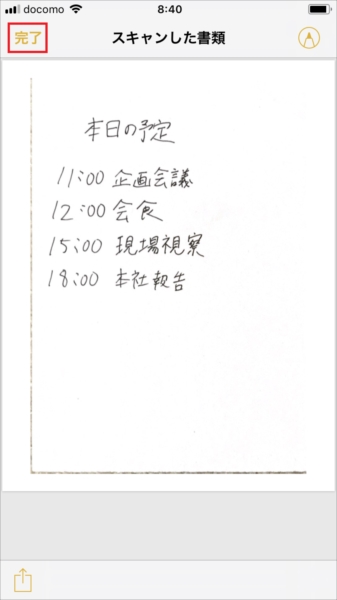 docomo 8:40
完了 スキャンした書類
本日の予定
11:00 企画会議
12:00 会食
15:00 現場視察
18:00 本社報告